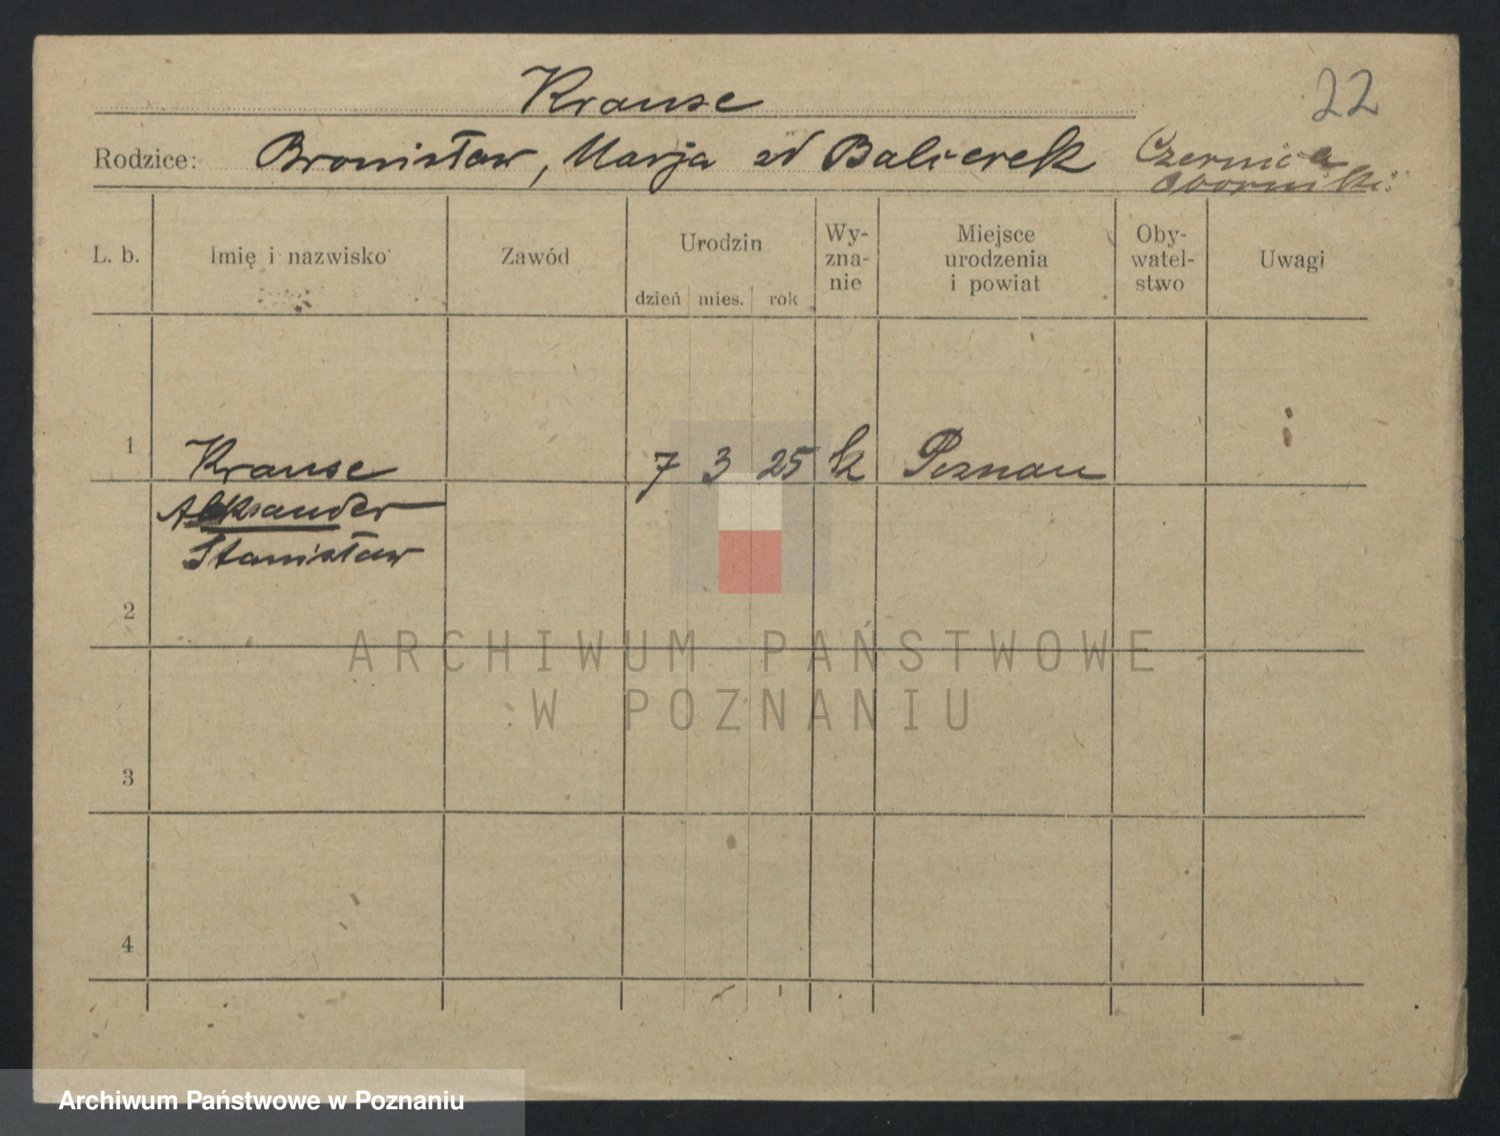 Krause
22
Rodzice: Bronisław, Marja
Czernica
Oborniki
L. b.
Imię i nazwisko
Zawód
Urodzin
dzień mies. rok
Wy-
zna-
nie
Miejsce
urodzenia
i powiat
Oby-
watel-
stwo
Uwagi
1 Krause 7 3 25 k Poznań
Aleksander
Stanisław
2
ARCHIWUM PAŃSTWOWE
W POZNANIU
3
4
Archiwum Państwowe w Poznaniu